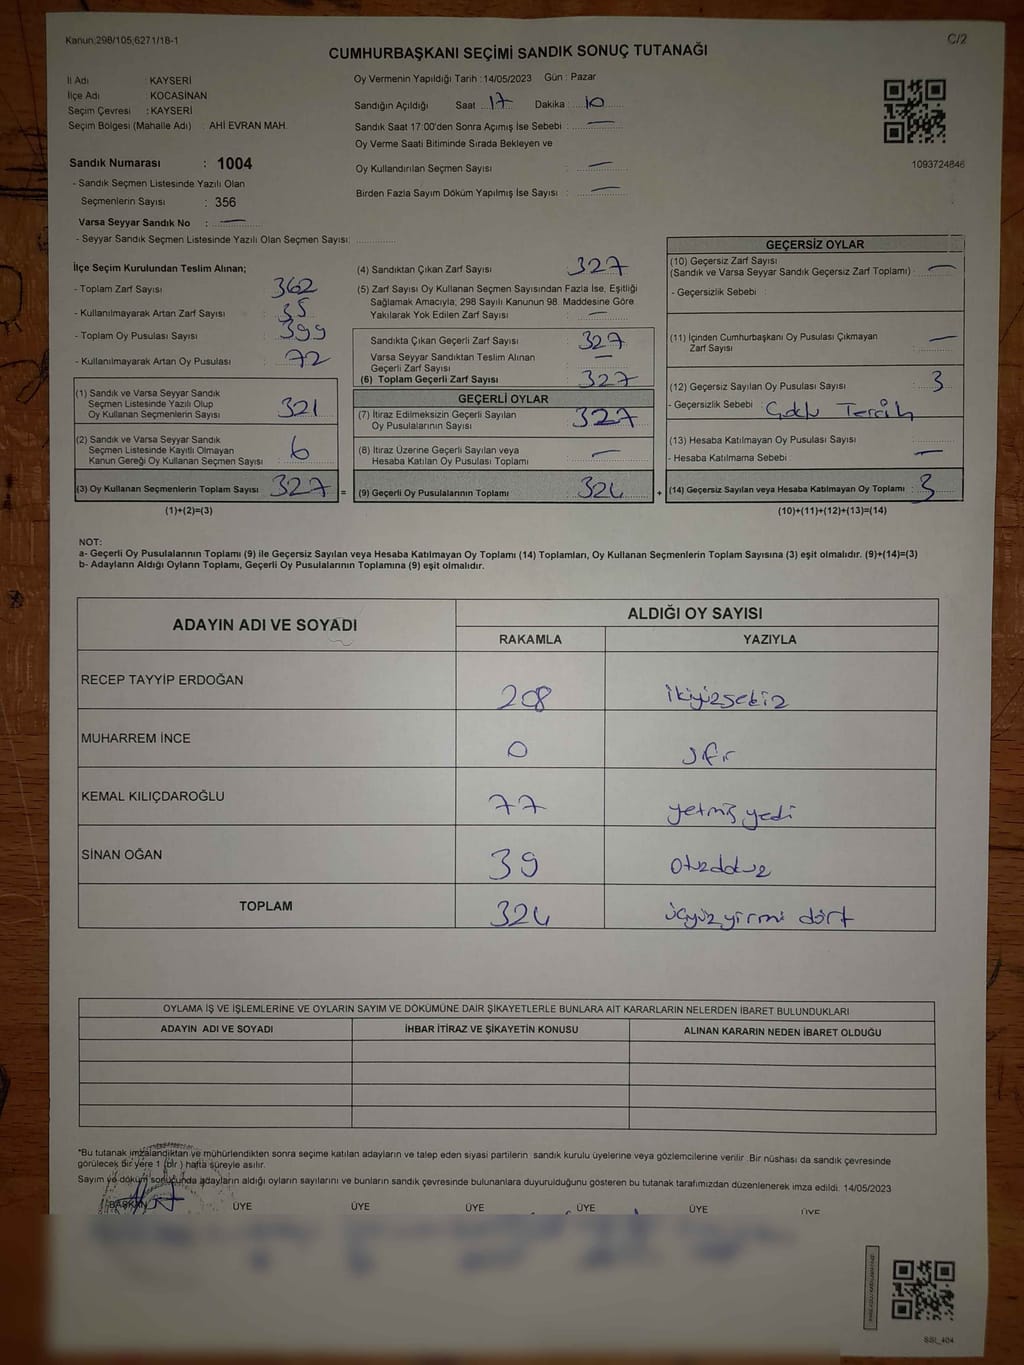 Kanun:298/105;6271/18-1
C/2
CUMHURBAŞKANI SEÇİMİ SANDIK SONUÇ TUTANAĞI
İl Adı : KAYSERİ
İlçe Adı : KOCASİNAN
Seçim Çevresi : KAYSERİ
Seçim Bölgesi (Mahalle Adı) : AHİ EVRAN MAH.
Sandık Numarası : 1004
- Sandık Seçmen Listesinde Yazılı Olan
Seçmenlerin Sayısı : 356
Varsa Seyyar Sandık No : —
- Seyyar Sandık Seçmen Listesinde Yazılı Olan Seçmen Sayısı:
Oy Vermenin Yapıldığı Tarih :14/05/2023 Gün : Pazar
Sandığın Açıldığı Saat : 17 Dakika : 10
Sandık Saat 17:00'den Sonra Açımış İse Sebebi : —
Oy Verme Saati Bitiminde Sırada Bekleyen ve
Oy Kullandırılan Seçmen Sayısı : —
Birden Fazla Sayım Döküm Yapılmış İse Sayısı : —
1093724846
İlçe Seçim Kurulundan Teslim Alınan;
- Toplam Zarf Sayısı : 362
- Kullanılmayarak Artan Zarf Sayısı : 35
- Toplam Oy Pusulası Sayısı : 399
- Kullanılmayarak Artan Oy Pusulası : 72
(1) Sandık ve Varsa Seyyar Sandık
Seçmen Listesinde Yazılı Olup
Oy Kullanan Seçmenlerin Sayısı : 321
(2) Sandık ve Varsa Seyyar Sandık
Seçmen Listesinde Kayıtlı Olmayan
Kanun Gereği Oy Kullanan Seçmen Sayısı : 6
(3) Oy Kullanan Seçmenlerin Toplam Sayısı : 327
(1)+(2)=(3)
(4) Sandıktan Çıkan Zarf Sayısı : 327
(5) Zarf Sayısı Oy Kullanan Seçmen Sayısından Fazla İse, Eşitliği
Sağlamak Amacıyla, 298 Sayılı Kanunun 98. Maddesine Göre
Yakılarak Yok Edilen Zarf Sayısı : —
Sandıkta Çıkan Geçerli Zarf Sayısı : 327
Varsa Seyyar Sandıktan Teslim Alınan
Geçerli Zarf Sayısı : —
(6) Toplam Geçerli Zarf Sayısı : 327
GEÇERLİ OYLAR
(7) İtiraz Edilmeksizin Geçerli Sayılan
Oy Pusulalarının Sayısı : 327
(8) İtiraz Üzerine Geçerli Sayılan veya
Hesaba Katılan Oy Pusulası Toplamı : —
= (9) Geçerli Oy Pusulalarının Toplamı : 324
GEÇERSİZ OYLAR
(10) Geçersiz Zarf Sayısı
(Sandık ve Varsa Seyyar Sandık Geçersiz Zarf Toplamı) : —
- Geçersizlik Sebebi :
(11) İçinden Cumhurbaşkanı Oy Pusulası Çıkmayan
Zarf Sayısı : —
(12) Geçersiz Sayılan Oy Pusulası Sayısı : 3
- Geçersizlik Sebebi : Çoklu Tercih
(13) Hesaba Katılmayan Oy Pusulası Sayısı :
- Hesaba Katılmama Sebebi : —
+ (14) Geçersiz Sayılan veya Hesaba Katılmayan Oy Toplamı : 3
(10)+(11)+(12)+(13)=(14)
NOT:
a- Geçerli Oy Pusulalarının Toplamı (9) ile Geçersiz Sayılan veya Hesaba Katılmayan Oy Toplamı (14) Toplamları, Oy Kullanan Seçmenlerin Toplam Sayısına (3) eşit olmalıdır. (9)+(14)=(3)
b- Adayların Aldığı Oyların Toplamı, Geçerli Oy Pusulalarının Toplamına (9) eşit olmalıdır.
ADAYIN ADI VE SOYADI
ALDIĞI OY SAYISI
RAKAMLA YAZIYLA
RECEP TAYYİP ERDOĞAN 208 ikiyüzsekiz
MUHARREM İNCE 0 sıfır
KEMAL KILIÇDAROĞLU 77 yetmiş yedi
SİNAN OĞAN 39 otuzdokuz
TOPLAM 324 üçyüzyirmi dört
OYLAMA İŞ VE İŞLEMLERİNE VE OYLARIN SAYIM VE DÖKÜMÜNE DAİR ŞİKAYETLERLE BUNLARA AİT KARARLARIN NELERDEN İBARET BULUNDUKLARI
ADAYIN ADI VE SOYADI İHBAR İTİRAZ VE ŞİKAYETİN KONUSU ALINAN KARARIN NEDEN İBARET OLDUĞU
*Bu tutanak imzalandıktan ve mühürlendikten sonra seçime katılan adayların ve talep eden siyasi partilerin sandık kurulu üyelerine veya gözlemcilerine verilir. Bir nüshası da sandık çevresinde
görülecek bir yere 1 (bir ) hafta süreyle asılır.
Sayım ve döküm sonucunda adayların aldığı oyların sayılarını ve bunların sandık çevresinde bulunanlara duyurulduğunu gösteren bu tutanak tarafımızdan düzenlenerek imza edildi. 14/05/2023
BAŞKAN ÜYE ÜYE ÜYE ÜYE ÜYE ÜYE
SSI_404